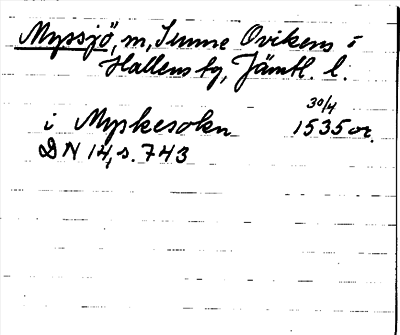 Myssjö, m, Sunne Ovikens i
Hallens tg, Jämtl. l.
i Myskesokn 30/4 1535 or.
DN 14, s. 743